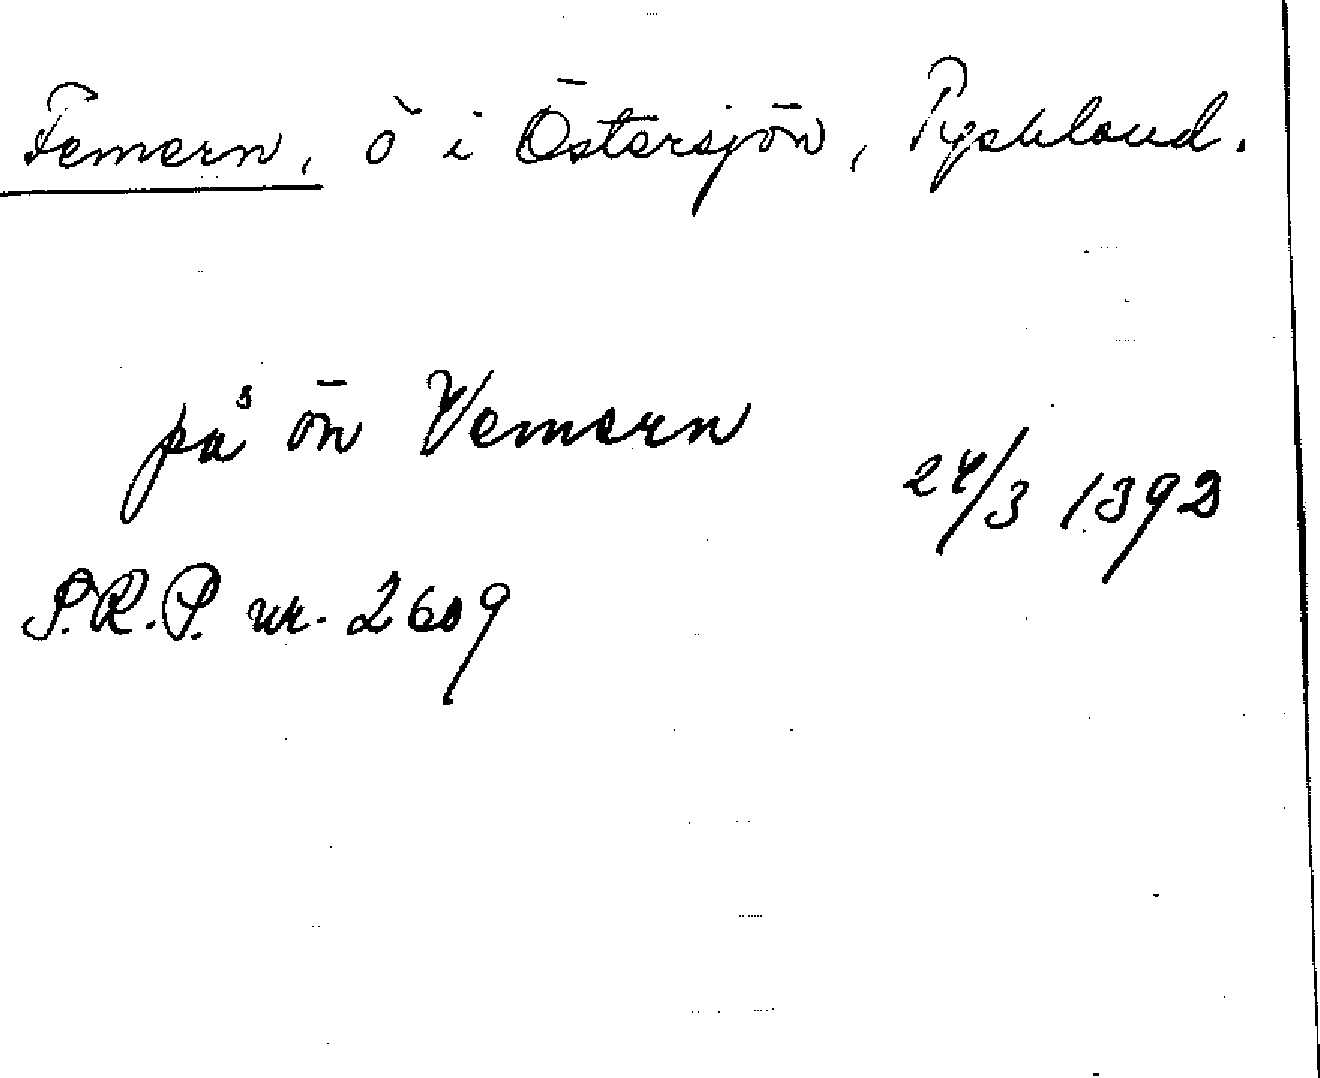 Femern, ö i Östersjön, Tyskland.
på ön Vemern
24/3 1392
S.R.P. nr. 2609